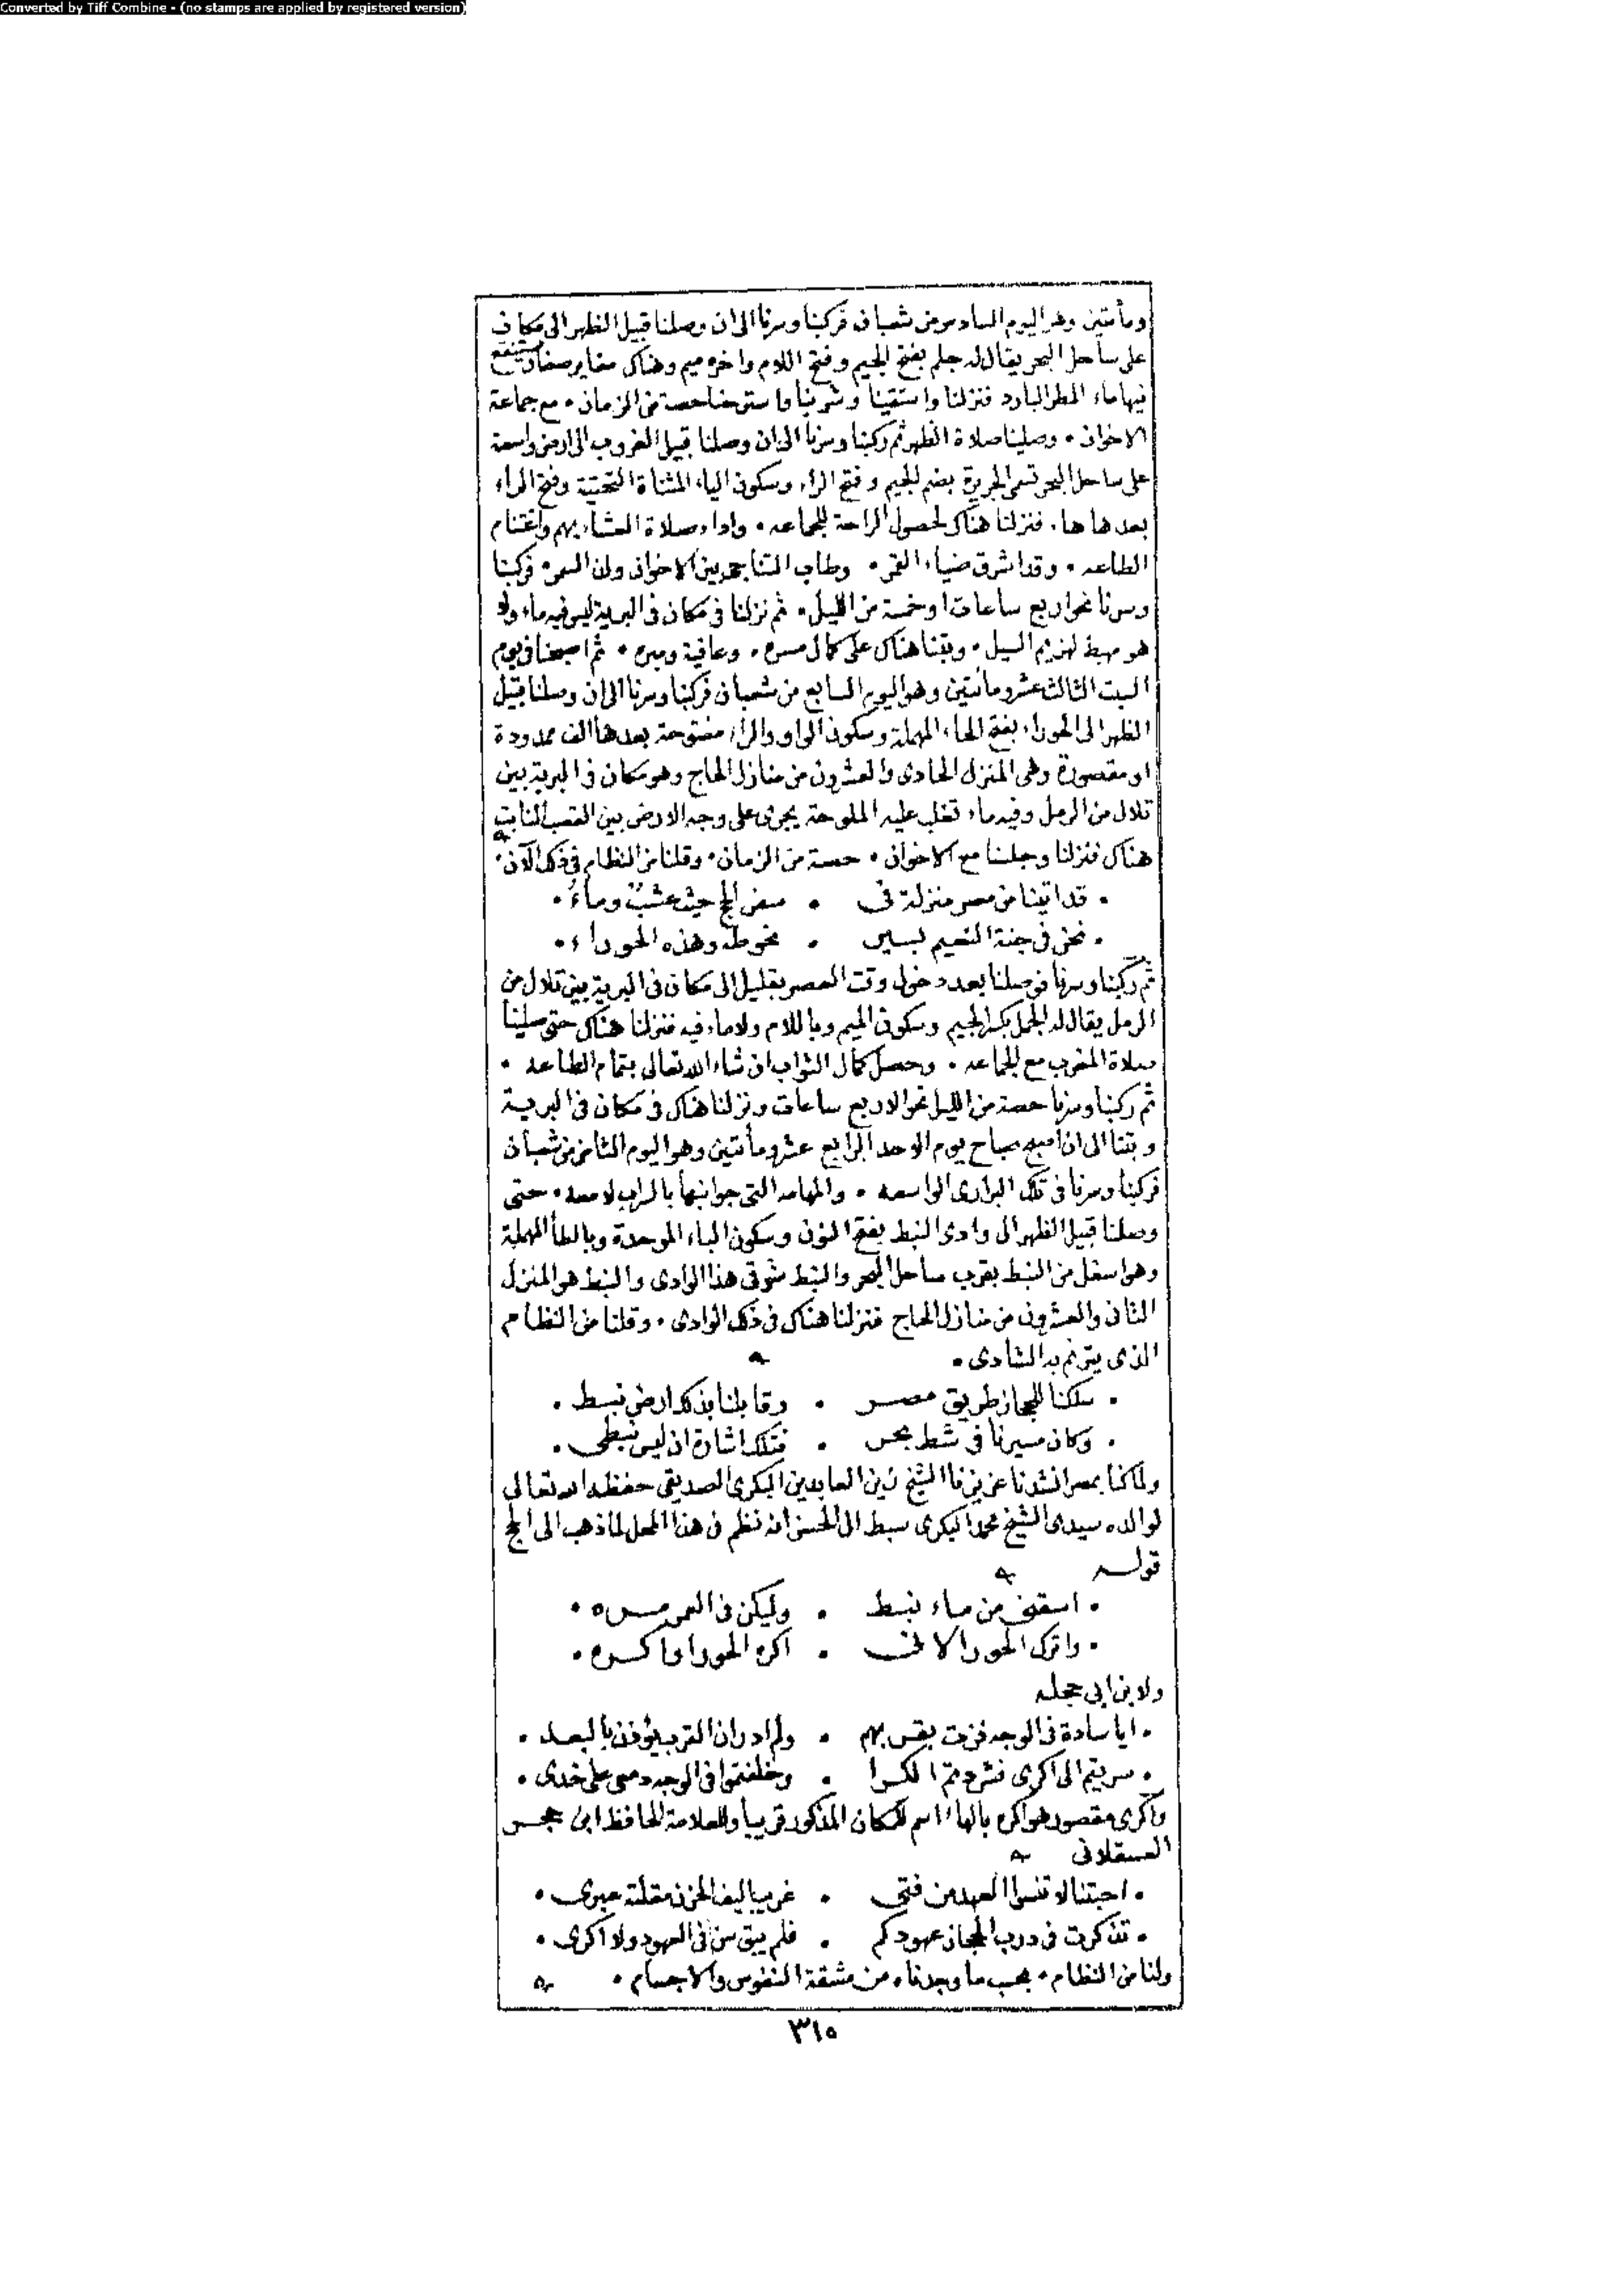 Converted by Tiff Combine - (no stamps are applied by registered version)
ومأتين وهو اليوم السادس من شعبان فركبنا وسرنا الى ان وصلنا قبيل الظهر الى مكان
على ساحل البحر يقال له جلم بفتح الجيم وفتح اللام واخره ميم وهناك صغار يستنقع
فيها ماء المطر البارد فنزلنا واستقينا وشربنا واسترحنا حصة من الزمان • مع جماعة
الاخوان • وصلينا صلاة الظهر ثم ركبنا وسرنا الى ان وصلنا قبيل الغروب الى ارض واسعة
على ساحل البحر تسمى الجريرة بضم الجيم وفتح الراء وسكون الياء المثناة التحتية وفتح الراء
بعدها هاء • فنزلنا هناك لحصول الراحة للجماعه • واداء صلاة العشاء بهم واغتنام
الطاعه • وقد اشرق ضياء القمر • وطاب التناجى بين الاخوان ولذ السمر • فركبنا
وسرنا نحو اربع ساعات او خمسة من الليل • ثم نزلنا فى مكان فى البرية ليس فيه ماء ولا
هو مهبط لهزيم السيل • وبتنا هناك على كمال مسره • وعافية ومبره • ثم اصبحنا فى يوم
السبت الثالث عشر ومأتين وهو اليوم السابع من شعبان فركبنا وسرنا الى ان وصلنا قبيل
الظهر الى الحوراء بفتح الحاء المهملة وسكون الواو والراء مفتوحة بعدها الف ممدودة
او مقصورة وهى المنزل الحادى والعشرون من منازل الحاج وهو مكان فى البرية بين
تلال من الرمل وفيه ماء تغلب عليه الملوحة يجرى على وجه الارض بين القصب النابت
هناك فنزلنا وجلسنا مع الاخوان • حصة من الزمان • وقلنا من النظام فى ذلك الآن •
• قد اتينا من مصر منزلة فى • سفر الحج حيث عشب وماء •
• نحن فى جنة النعيم بسير • نحو طه وهذه الحوراء •
ثم ركبنا وسرنا فوصلنا بعد دخول وقت العصر بقليل الى مكان فى البرية بين تلال من
الرمل يقال له الجمل بكسر الجيم وسكون الميم وباللام ولا ماء فيه فنزلنا هناك حتى صلينا
صلاة المغرب مع الجماعه • وحصل كمال الثواب ان شاء الله تعالى بتمام الطاعه •
ثم ركبنا وسرنا حصة من الليل نحو الاربع ساعات ونزلنا هناك فى مكان فى البرية
وبتنا الى ان اصبح صباح يوم الاحد الرابع عشر ومأتين وهو اليوم الثامن من شعبان
فركبنا وسرنا فى تلك البرارى الواسعه • والمهامه التى جوانبها بالسراب لامعه • حتى
وصلنا قبيل الظهر الى وادى النبط بفتح النون وسكون الباء الموحدة وبالطاء المهملة
وهو اسفل من النبط بقرب ساحل البحر والنبط شرقى هذا الوادى والنبط هو المنزل
الثانى والعشرون من منازل الحاج فنزلنا هناك فى ذلك الوادى • وقلنا من النظام
الذى يترنم به الشادى •
• سلكنا للحجاز طريق مصر • وقابلنا بذلك ارض نبط •
• وكان مسيرنا فى شط بحر • فتلك اشارة ان ليس نبطى •
ولما كنا بمصر انشدنا عزيزنا الشيخ زين العابدين البكرى الصديقى حفظه الله تعالى
لوالده سيدى الشيخ محمد البكرى سبط آل الحسن انه نظم فى هذا المحل لما ذهب الى الحج
قوله
• اسقنى من ماء نبط • وليكن فى العمر مره •
• واترك الحورا لانى • اكره الحورا واكره •
ولابن ابى حجله
• ايا سادة فى الوجه فزت بقربهم • ولم ادر ان القرب يؤذن بالبعد •
• سريتم الى اكرى فشردتم الكرا • وخلفتموا فى الوجه دمعى على خدى •
واكرى مقصور هو اكره بالهاء اسم للمكان المذكور قريبا وللعلامة الحافظ ابن حجر
العسقلانى
• احبتنا لا تنسوا العهد من فتى • غريب اليف الحزن مقلته عبرى •
• تذكرت فى درب الحجاز عهودكم • فلم يبق سن فى العهود ولا اكرى •
ولنا من النظام • بحسب ما وجدناه من مشقة النفوس والاجسام •
٣١٥